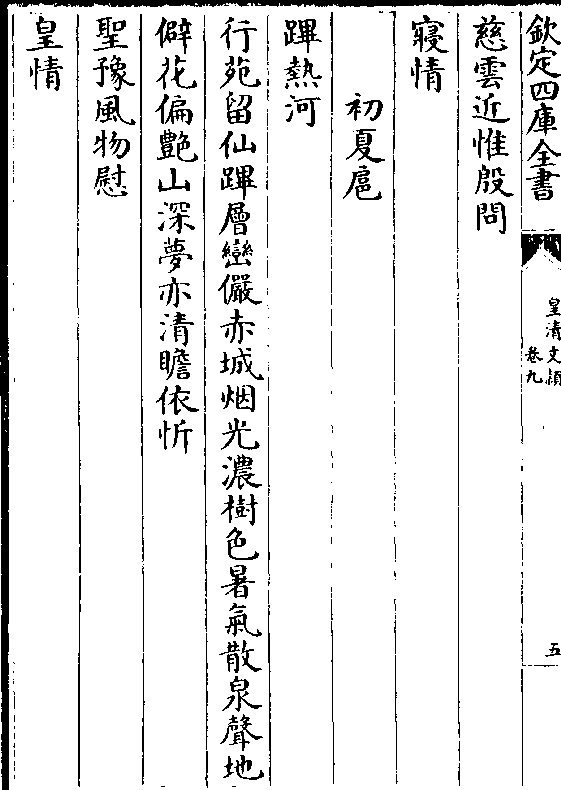 欽定四庫全書
皇清文穎
卷九
五
慈雲近惟殷問
寢情
初夏扈
蹕熱河
行苑留仙蹕層巒儼赤城烟光濃樹色暑氣散泉聲地
僻花偏艷山深夢亦清瞻依忻
聖豫風物慰
皇情